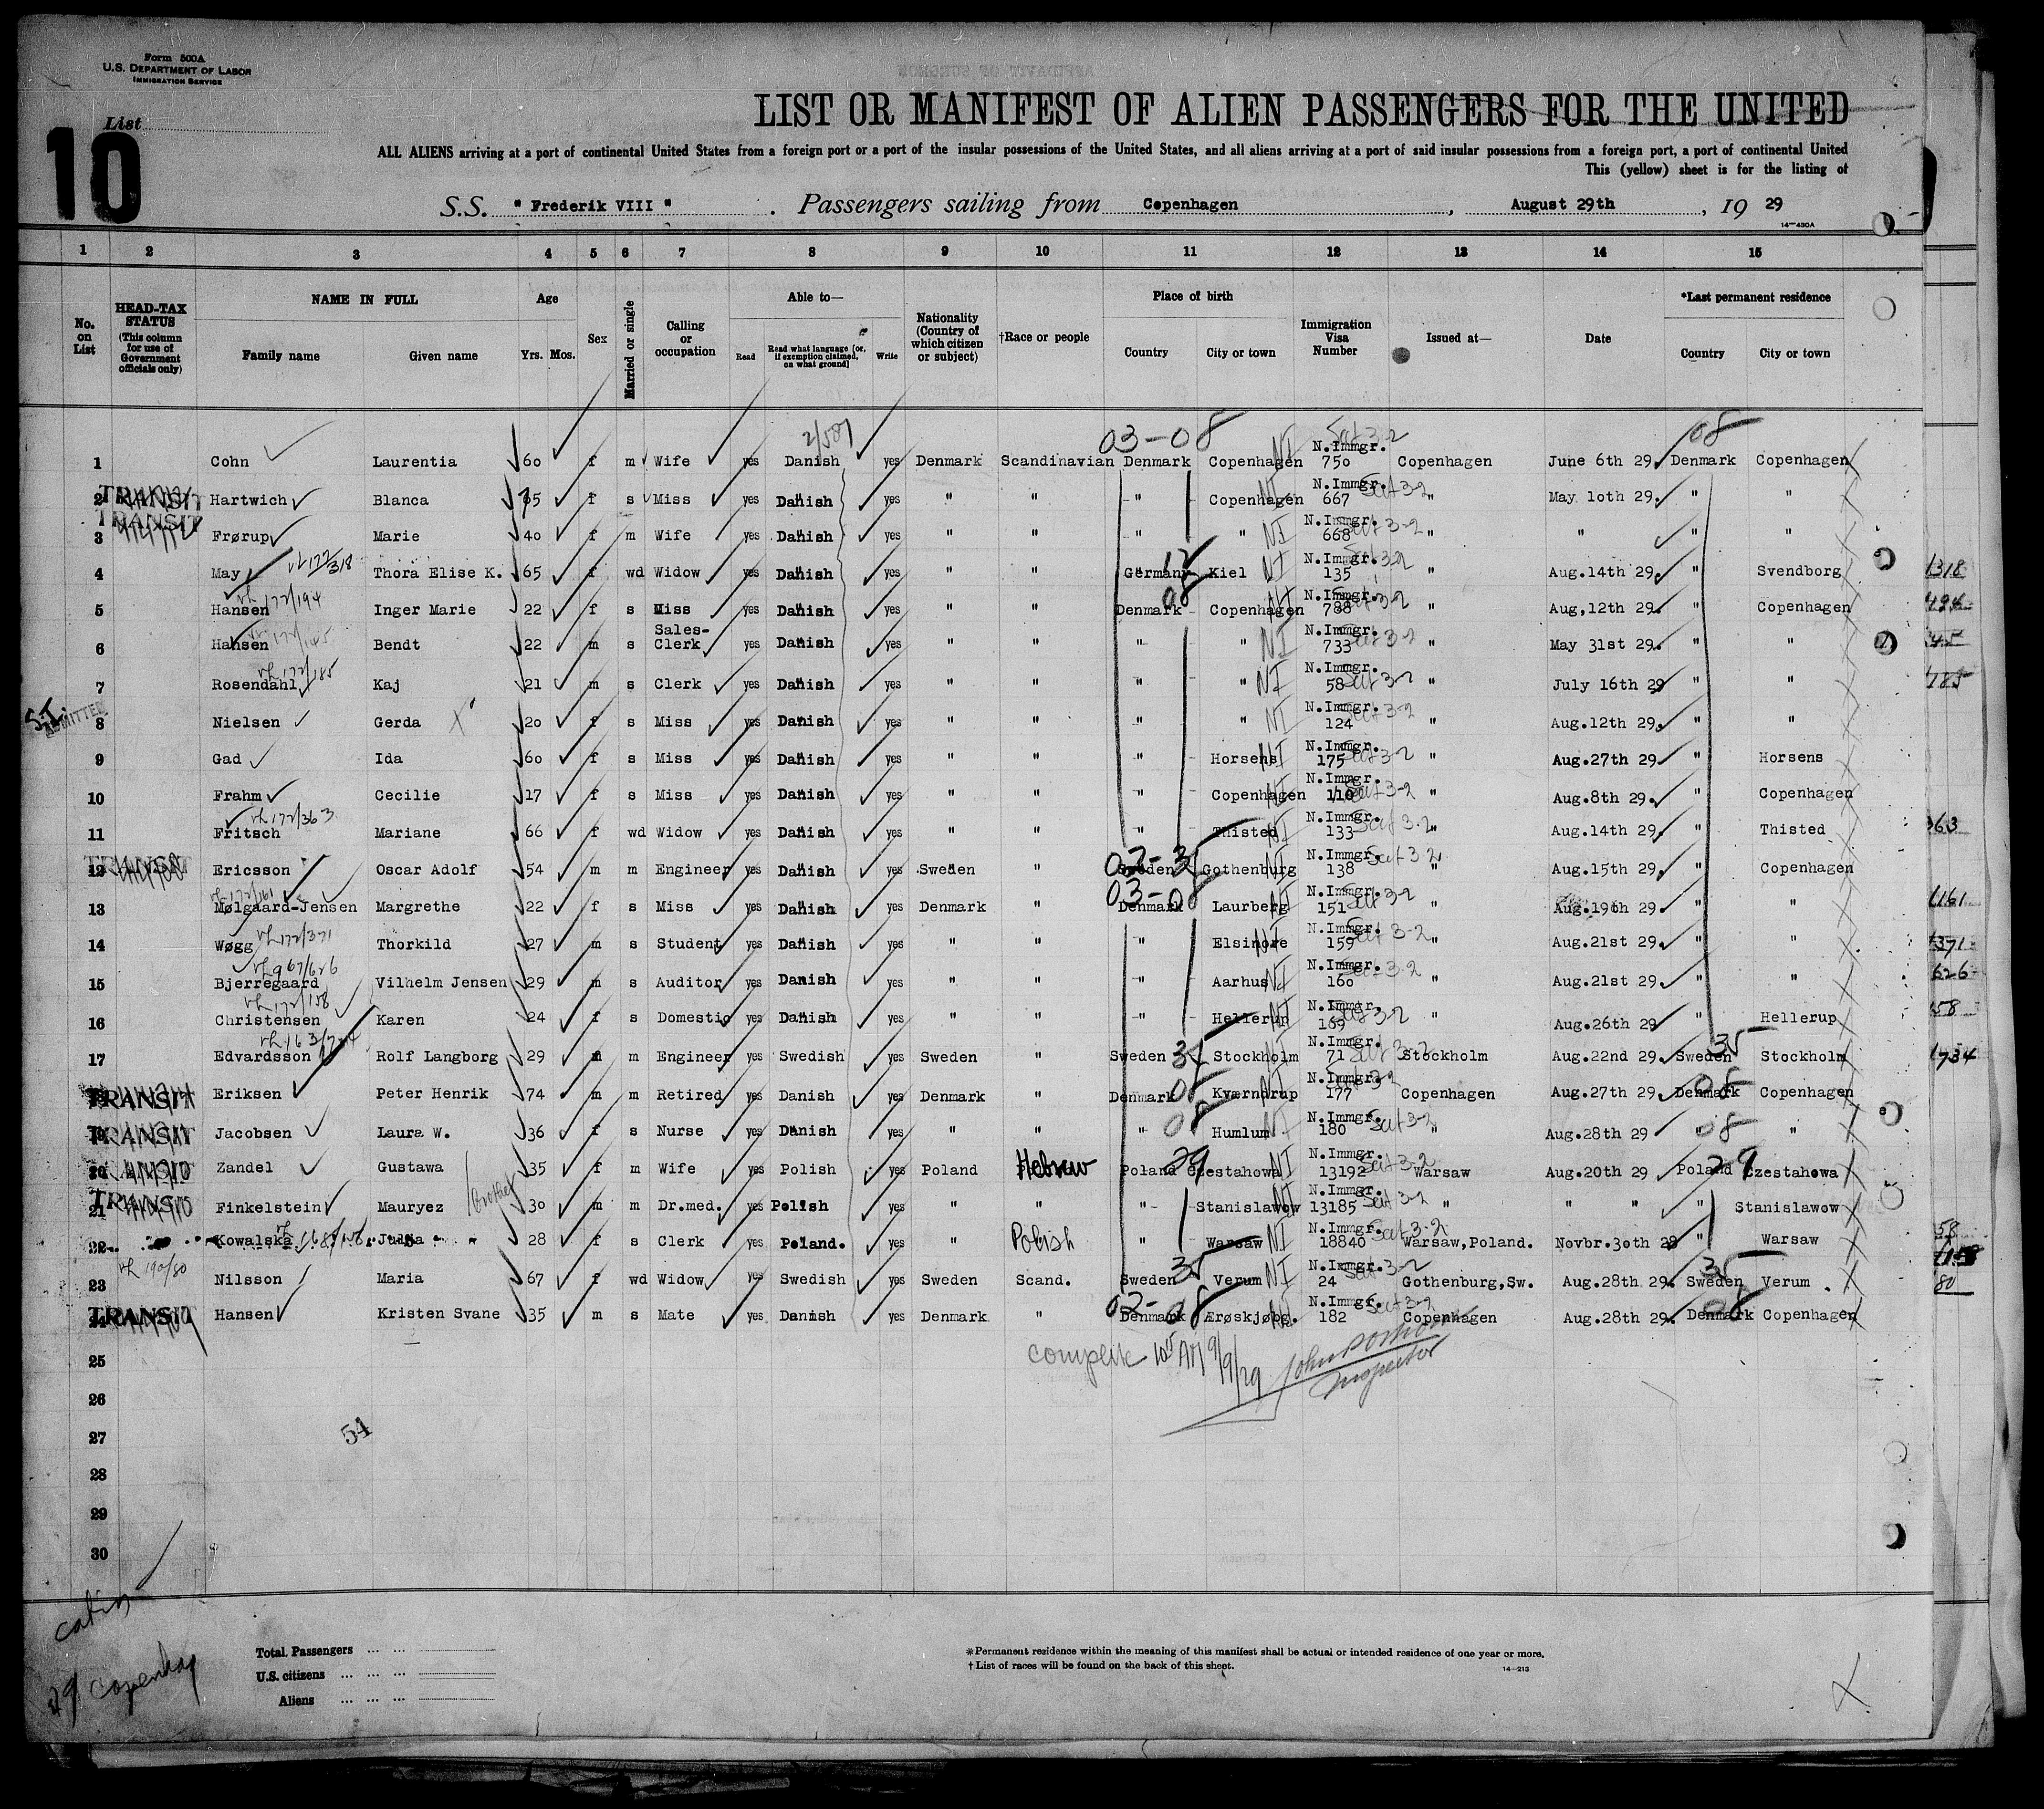 Form 500A
U.S. DEPARTMENT OF LABOR
IMMIGRATION SERVICE
List
10
LIST OR MANIFEST OF ALIEN PASSENGERS FOR THE UNITED
ALL ALIENS arriving at a port of continental United States from a foreign port or a port of the insular possessions of the United States, and all aliens arriving at a port of said insular possessions from a foreign port, a port of continental United
This (yellow) sheet is for the listing of
S.S. " Frederik VIII " . Passengers sailing from Copenhagen , August 29th , 19 29
14—430A
1 2 3 4 5 6 7 8 9 10 11 12 13 14 15
No. on List
HEAD-TAX STATUS (This column for use of Government officials only)
NAME IN FULL
Family name Given name
Age
Yrs. Mos.
Sex
Married or single
Calling or occupation
Able to—
Read Read what language [or, if exemption claimed, on what ground] Write
Nationality (Country of which citizen or subject)
†Race or people
Place of birth
Country City or town
Immigration Visa Number
Issued at—
Date
*Last permanent residence
Country City or town
03-08 08
1 Cohn Laurentia 60 f m Wife yes Danish yes Denmark Scandinavian Denmark Copenhagen NI N.Immgr. 750 Copenhagen June 6th 29. Denmark Copenhagen
2 TRANSIT Hartwich Blanca f s Miss yes Danish yes " " " Copenhagen NI N.Immgr. 667 " May 10th 29. " "
3 TRANSIT Frørup Marie 40 f m Wife yes Danish yes " " " " NI N.Immgr. 668 " " " "
4 May Thora Elise K. 65 f wd Widow yes Danish yes " " Germany 12 Kiel NI N.Immgr. 135 " Aug.14th 29. " Svendborg 318
5 Hansen Inger Marie 22 f s Miss yes Danish yes " " Denmark 08 Copenhagen NI N.Immgr. 788 " Aug,12th 29. " Copenhagen
6 Hansen Bendt 22 m s Sales-Clerk yes Danish yes " " " " NI N.Immgr. 733 " May 31st 29. " "
7 Rosendahl Kaj 21 m s Clerk yes Danish yes " " " " NI N.Immgr. 58 " July 16th 29 " " 185
S.I. ADMITTED 8 Nielsen Gerda 20 f s Miss yes Danish yes " " " " NI N.Immgr. 124 " Aug.12th 29. " "
9 Gad Ida 60 f s Miss yes Danish yes " " " Horsens NI N.Immgr. 175 " Aug.27th 29. " Horsens
10 Frahm Cecilie 17 f s Miss yes Danish yes " " " Copenhagen NI N.Immgr. 110 " Aug.8th 29. " Copenhagen
11 Fritsch Mariane 66 f wd Widow yes Danish yes " " " Thisted NI N.Immgr. 133 " Aug.14th 29. " Thisted 363
12 TRANSIT Ericsson Oscar Adolf 54 m m Engineer yes Danish yes Sweden " Sweden Gothenburg NI N.Immgr. 138 " Aug.15th 29. " Copenhagen
13 Mølgaard-Jensen Margrethe 22 f s Miss yes Danish yes Denmark " 03-08 Denmark Laurberg NI N.Immgr. 151 " Aug.19th 29. " " 161
14 Wøgg Thorkild 27 m s Student yes Danish yes " " " Elsinore NI N.Immgr. 159 " Aug.21st 29. " " 371
15 Bjerregaard Vilhelm Jensen 29 m s Auditor yes Danish yes " " " Aarhus NI N.Immgr. 160 " Aug.21st 29. " " 626
16 Christensen Karen 24 f s Domestic yes Danish yes " " " Hellerup NI N.Immgr. 169 " Aug.26th 29 " Hellerup 58
17 Edvardsson Rolf Langborg 29 m m Engineer yes Swedish yes Sweden " Sweden 35 Stockholm N.Immgr. 71 Stockholm Aug.22nd 29. Sweden 35 Stockholm 734
18 TRANSIT Eriksen Peter Henrik 74 m m Retired yes Danish yes Denmark " Denmark 08 Kværndrup NI N.Immgr. 177 Copenhagen Aug.27th 29. Denmark 08 Copenhagen
19 TRANSIT Jacobsen Laura W. 36 f s Nurse yes Danish yes " " " 08 Humlum N.Immgr. 180 " Aug.28th 29 " 08 "
20 Zandel Gustawa 35 f m Wife yes Polish yes Poland Hebrew Poland 29 Czestahowa NI N.Immgr. 13192 Warsaw Aug.20th 29 Poland 29 Czestahowa
21 TRANSIT Finkelstein Mauryez 30 m m Dr.med. yes Polish yes " " " Stanislawow N.Immgr. 13185 " " " " Stanislawow
22 Kowalska Julia 28 f s Clerk yes Poland. yes " Polish " Warsaw NI N.Immgr. 18840 Warsaw,Poland. Novbr.30th 28 " Warsaw 58
23 Nilsson Maria 67 f wd Widow yes Swedish yes Sweden Scand. Sweden 35 Verum NI N.Immgr. 24 Gothenburg,Sw. Aug.28th 29. Sweden 35 Verum 80
24 TRANSIT Hansen Kristen Svane 35 m s Mate yes Danish yes Denmark " Denmark 08 Ærøskjøbg. N.Immgr. 182 Copenhagen Aug.28th 29. Denmark 08 Copenhagen
25 complete 9/9/29
Inspector
26
27
54
28
29
30
cabin
29 Copenhag
Total Passengers
U.S. citizens
Aliens
*Permanent residence within the meaning of this manifest shall be actual or intended residence of one year or more.
†List of races will be found on the back of this sheet.
14—213